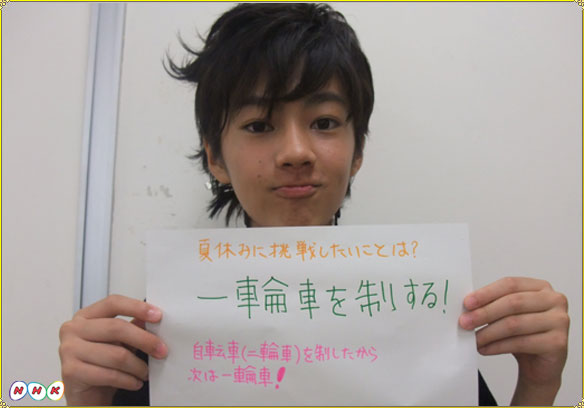 夏休みに挑戦したいことは?
一輪車を制する!
自転車(二輪車)を制したから
次は一輪車!
NHK